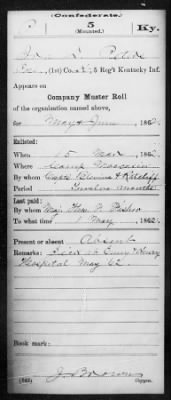 (Confederate.)
P 5 Ky.
(Mounted.)
(1st) Co. 5 Reg't Kentucky Inf.
Appears on
Company Muster Roll
of the organization named above,
for May & June, 1862.
Enlisted:
When 15 Mar, 186
Where Camp
By whom Capts &
Period Twelve months
Last paid:
By whom Maj.
To what time 1 May, 1862.
Present or absent Absent
Remarks: Died at Emory & Henry
Hospital May 62
Book mark:
J. Brown
Copyist.